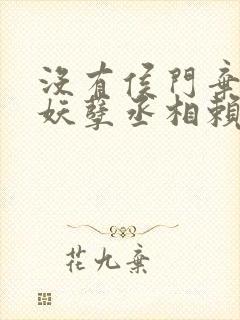 沒有侯門棄
妖孽丞相賴
花九棄